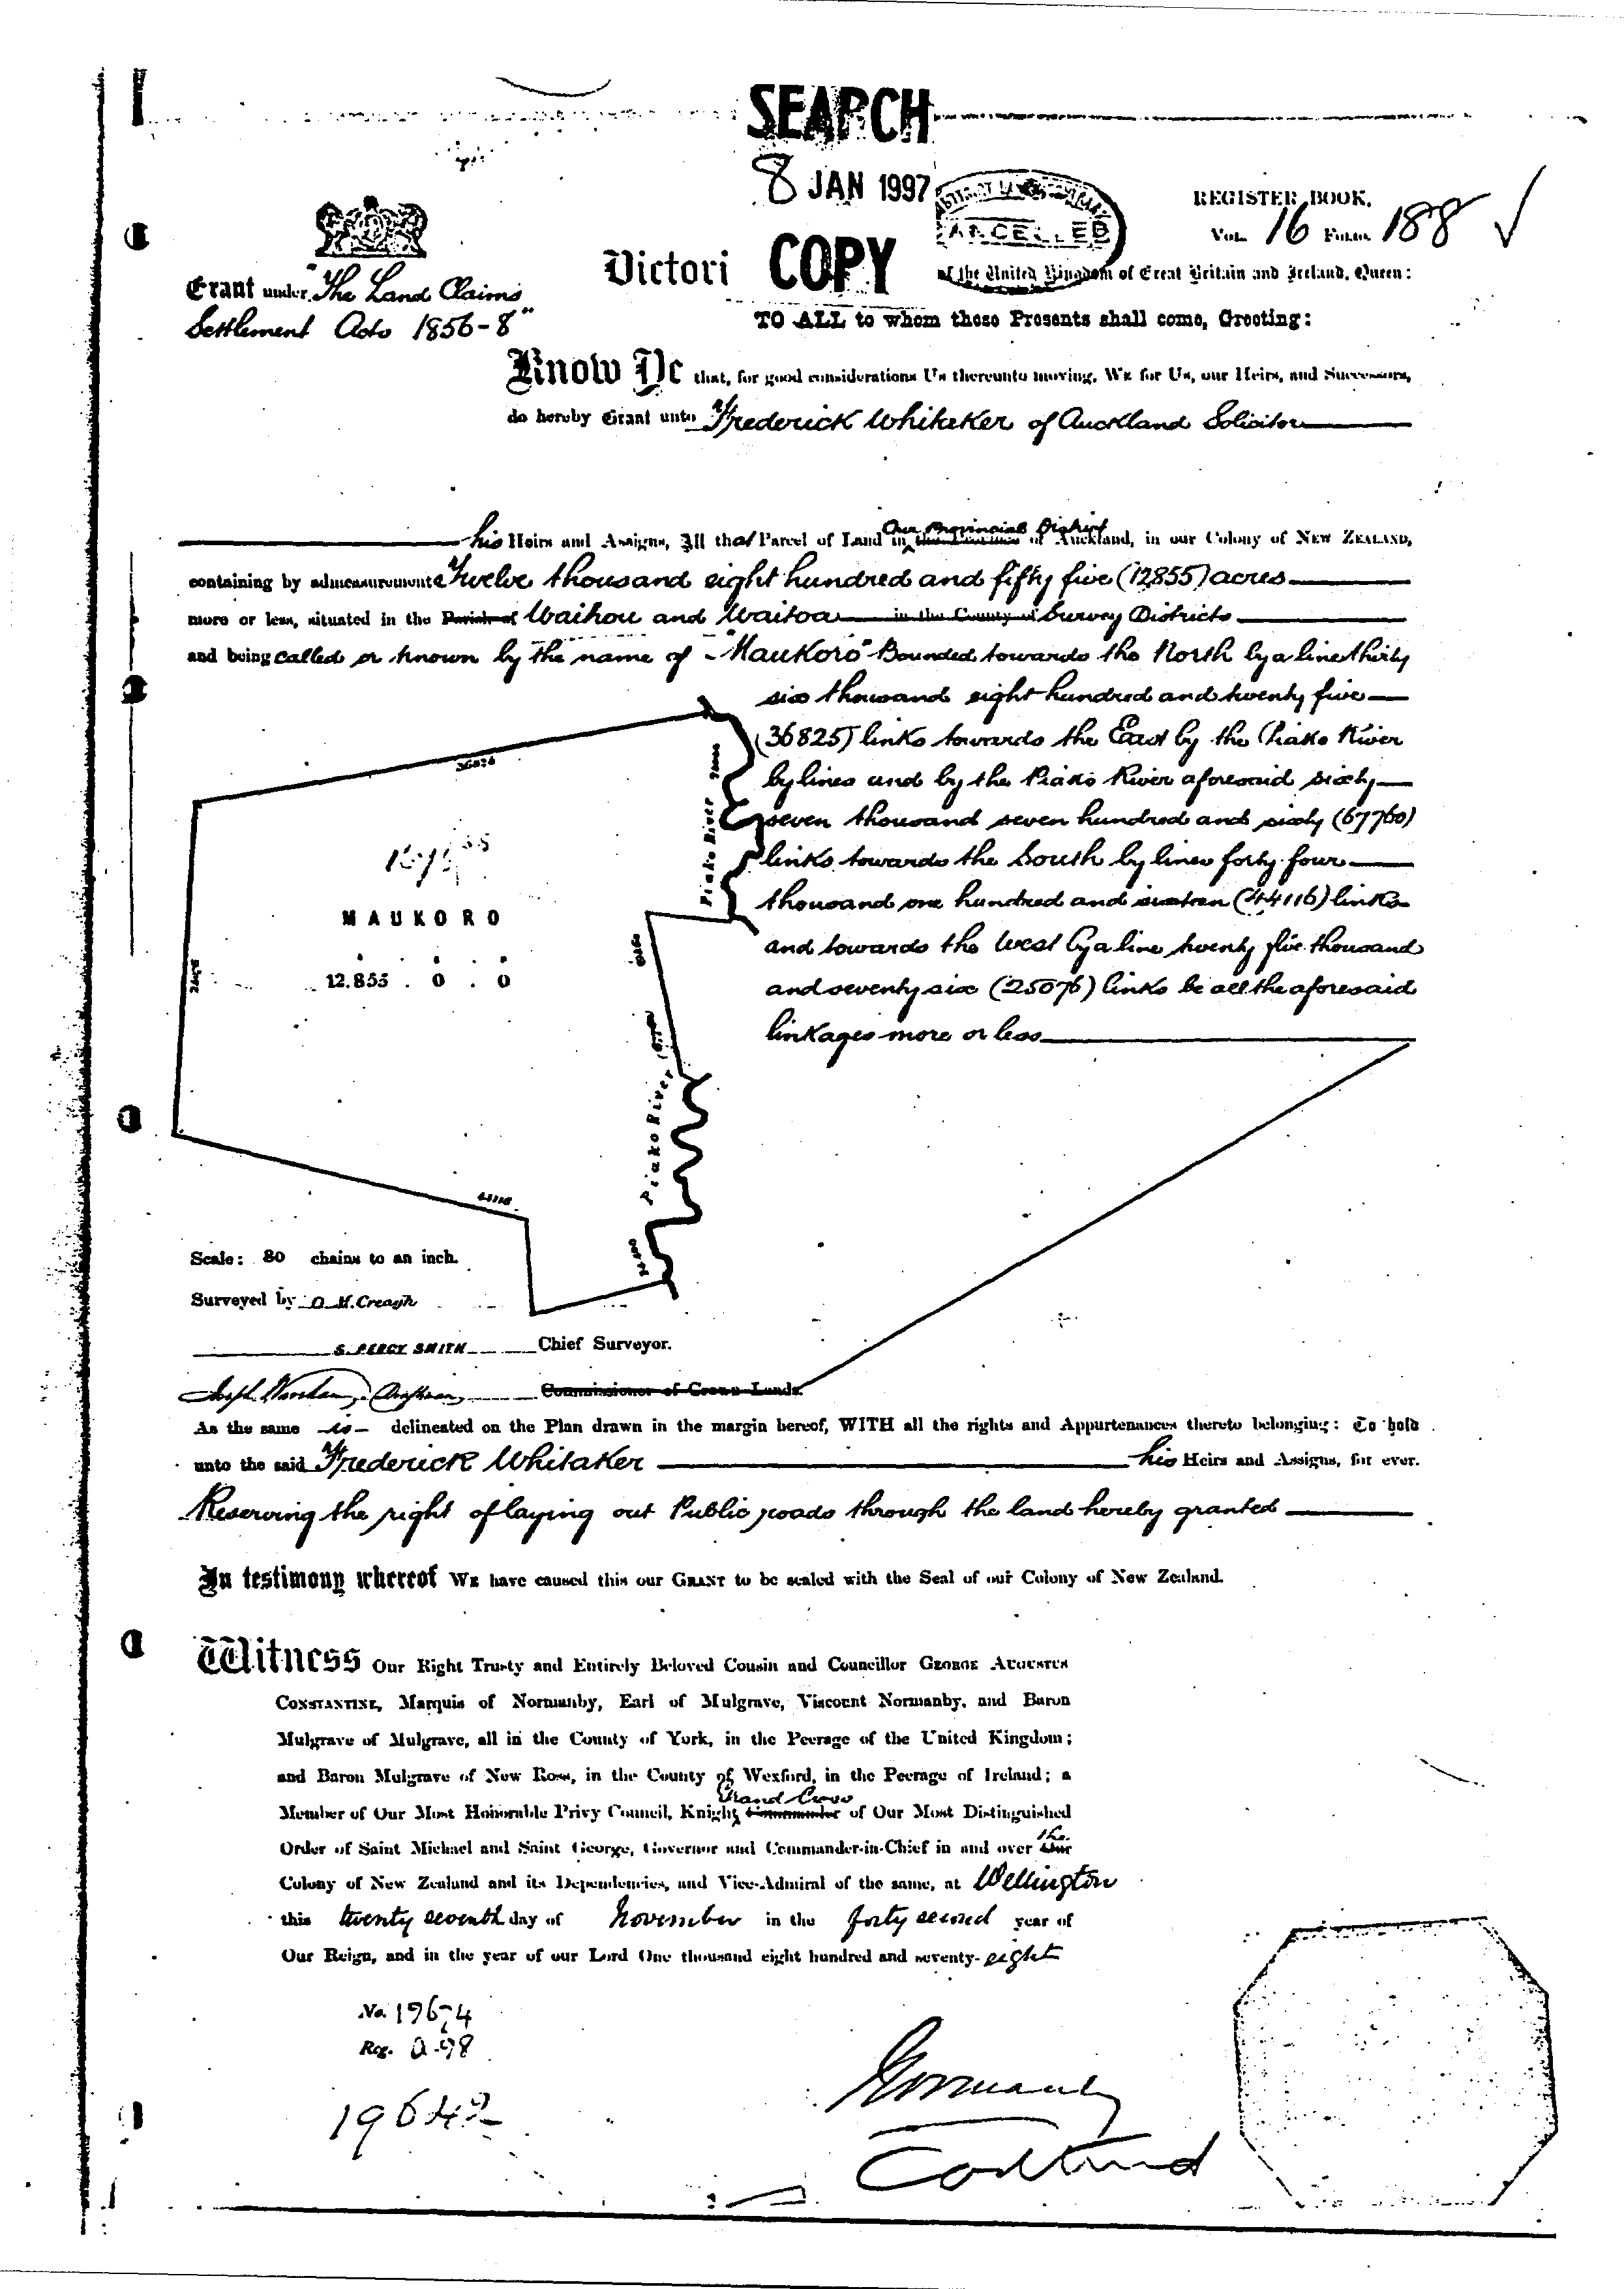 SEARCH
8 JAN 1997
COPY
CANCELLED
REGISTER BOOK,
Vol. 16 Folio. 188
Victori
of the United Kingdom of Great Britain and Ireland, Queen:
Grant under "The Land Claims
Settlement Acts 1856-8"
TO ALL to whom these Presents shall come, Greeting:
Know Ye that, for good considerations Us thereunto moving, We for Us, our Heirs, and Successors,
do hereby Grant unto Frederick Whiteker of Auckland Solicitor
his Heirs and Assigns, All that Parcel of Land in Our Provincial District of Auckland, in our Colony of NEW ZEALAND,
containing by admeasurement Twelve thousand eight hundred and fifty five (12855) acres
more or less, situated in the Parish of Waihou and Waitoa in the County of Survey Districts
and being called or known by the name of "Maukoro" Bounded towards the North by a line thirty
six thousand eight hundred and twenty five
(36825) links towards the East by the Piako River
by lines and by the Piako River aforesaid sixty
seven thousand seven hundred and sixty (67760)
links towards the South by lines forty four
thousand one hundred and sixteen (44116) links
and towards the West by a line twenty five thousand
and seventy six (25076) links be all the aforesaid
linkages more or less
Piako River
MAUKORO
12.855 . 0 . 0
Piako River
44116
Scale: 80 chains to an inch.
Surveyed by O. M. Creagh
S. PERCY SMITH Chief Surveyor.
Commissioner of Crown Lands.
As the same is delineated on the Plan drawn in the margin hereof, WITH all the rights and Appurtenances thereto belonging: To hold
unto the said Frederick Whitaker his Heirs and Assigns, for ever.
Reserving the right of laying out Public roads through the land hereby granted
In testimony whereof WE have caused this our GRANT to be sealed with the Seal of our Colony of New Zealand.
Witness Our Right Trusty and Entirely Beloved Cousin and Councillor GEORGE AUGUSTUS
CONSTANTINE, Marquis of Normanby, Earl of Mulgrave, Viscount Normanby, and Baron
Mulgrave of Mulgrave, all in the County of York, in the Peerage of the United Kingdom;
and Baron Mulgrave of New Ross, in the County of Wexford, in the Peerage of Ireland; a
Member of Our Most Honorable Privy Council, Knight Grand Cross Commander of Our Most Distinguished
Order of Saint Michael and Saint George, Governor and Commander-in-Chief in and over the Our
Colony of New Zealand and its Dependencies, and Vice-Admiral of the same, at Wellington
this twenty seventh day of November in the forty second year of
Our Reign, and in the year of our Lord One thousand eight hundred and seventy-eight
No. 19674
Reg.
Normanby